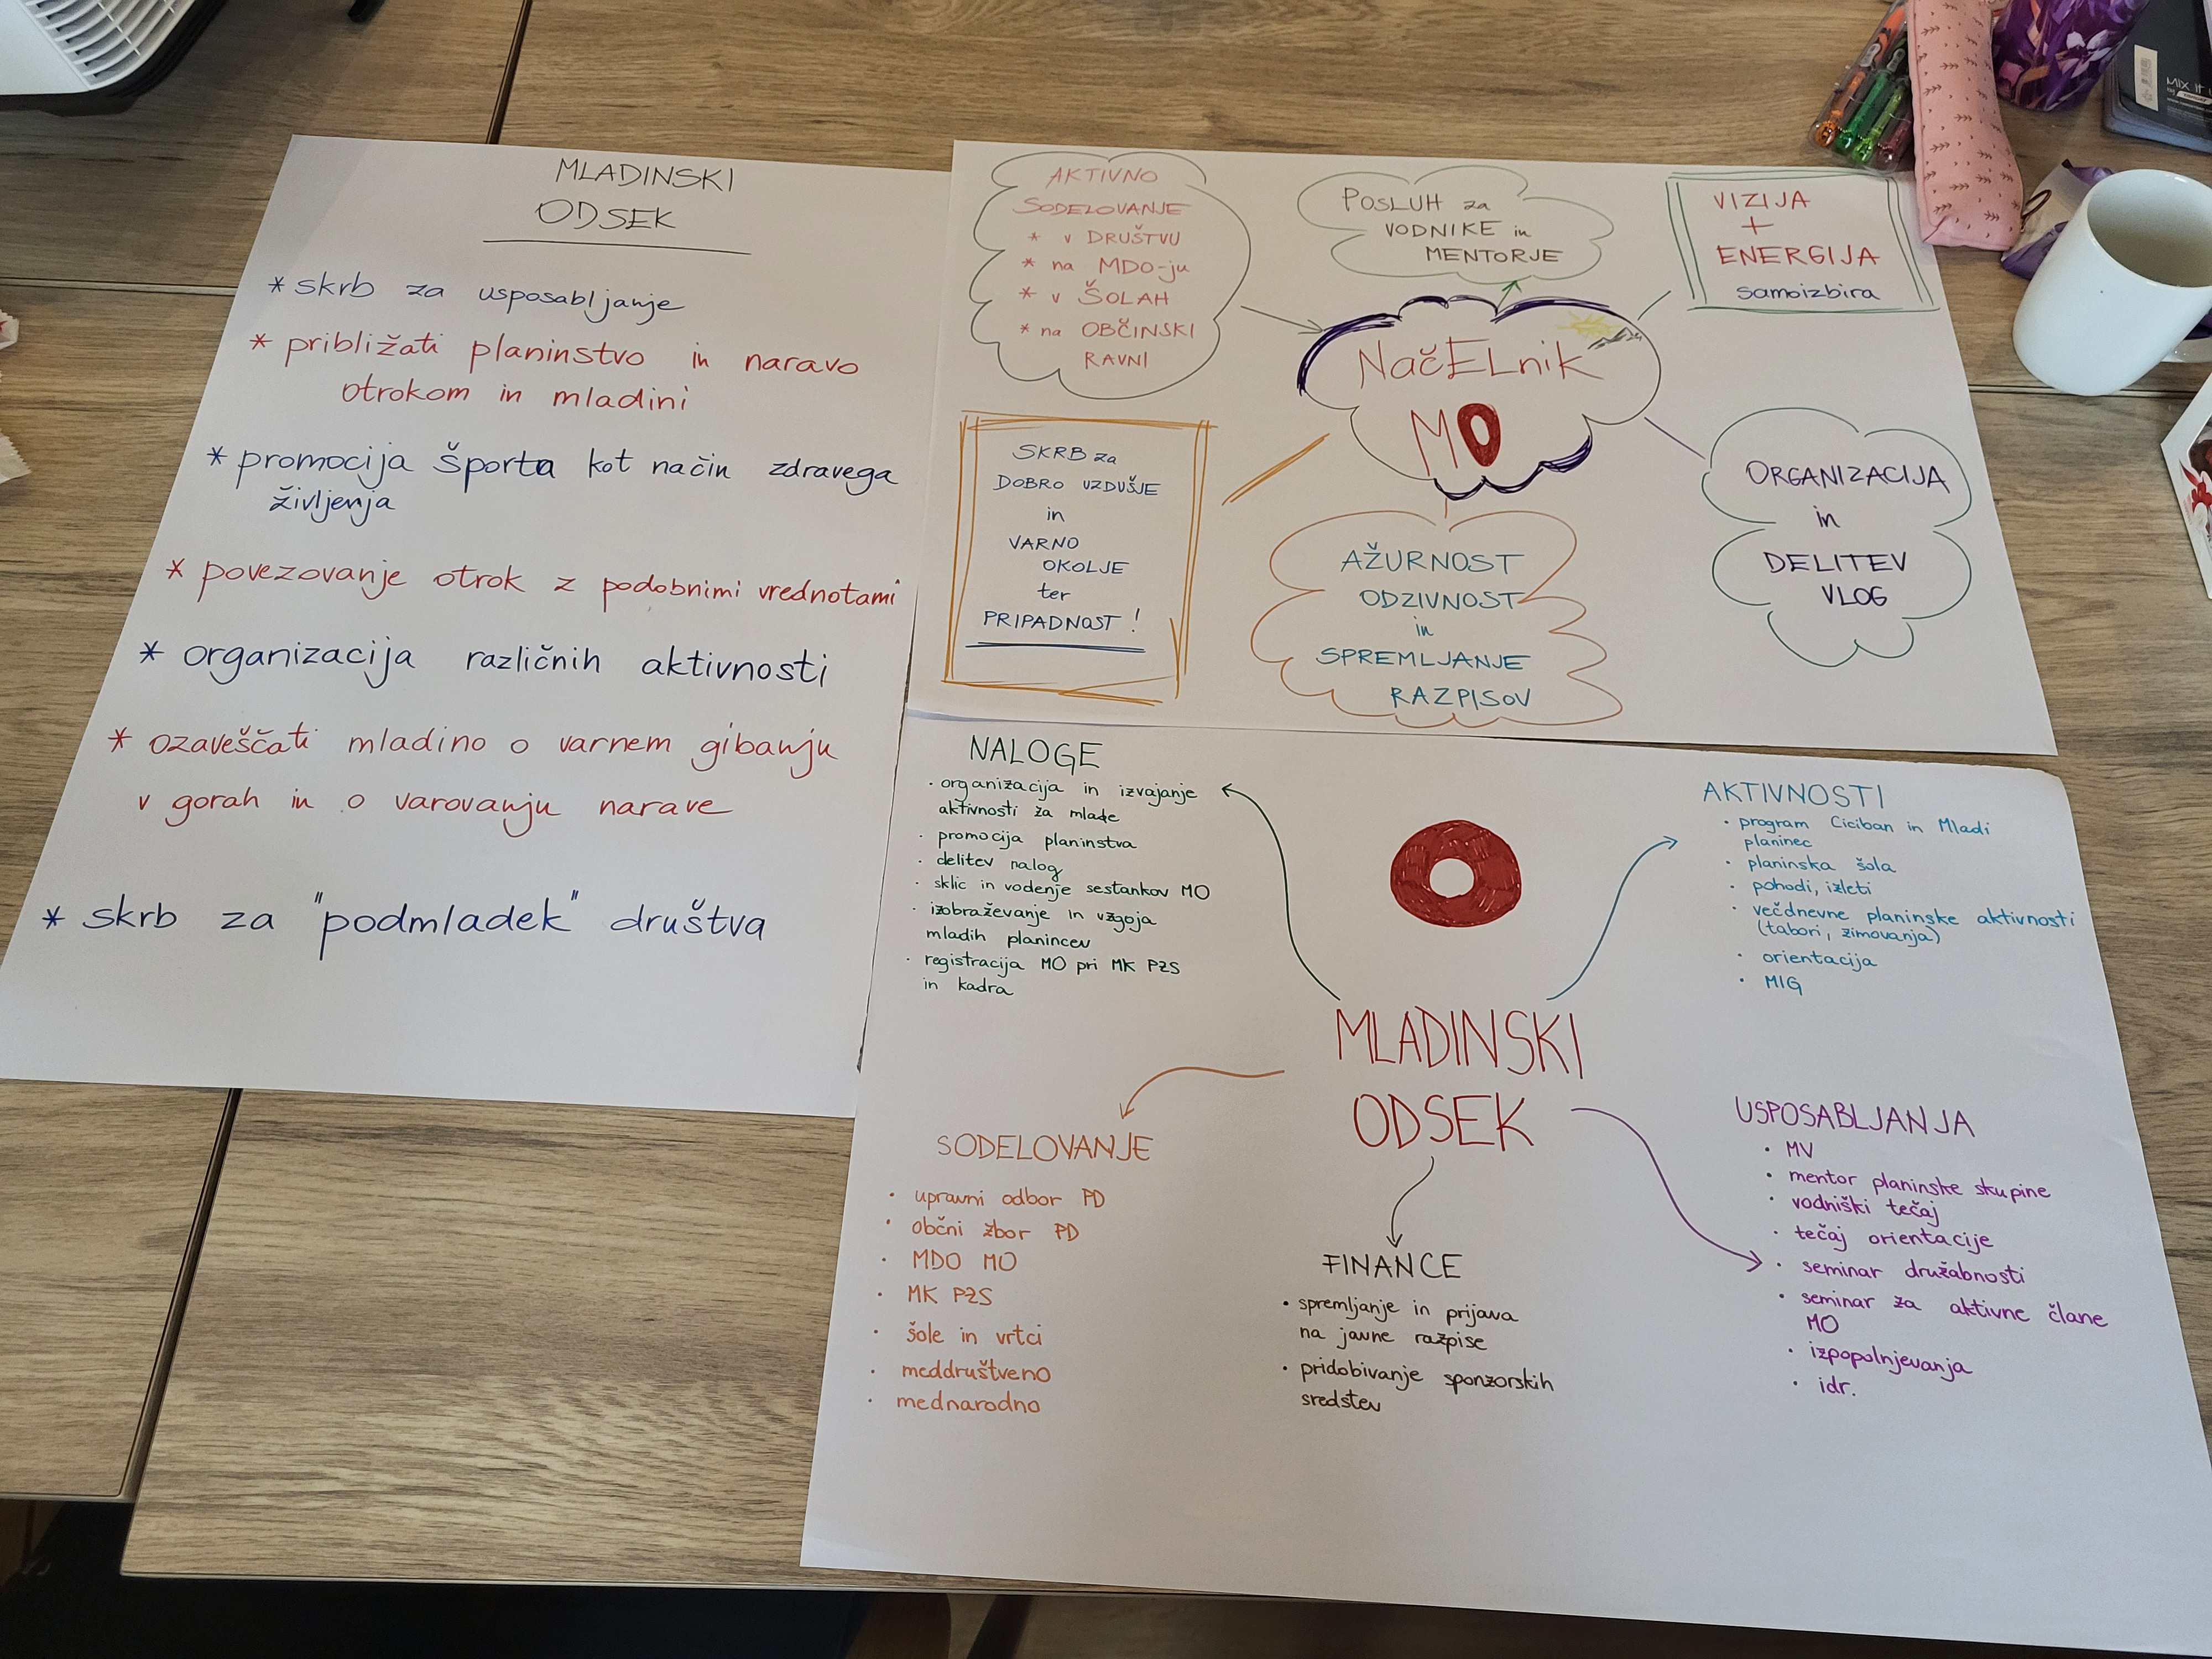 MLADINSKI
ODSEK
* skrb za usposabljanje
* približati planinstvo in naravo
otrokom in mladini
* promocija športa kot način zdravega
življenja
* povezovanje otrok z podobnimi vrednotami
* organizacija različnih aktivnosti
* ozaveščati mladino o varnem gibanju
v gorah in o varovanju narave
* skrb za "podmladek" društva
AKTIVNO
SODELOVANJE
* v DRUŠTVU
* na MDO-ju
* v ŠOLAH
* na OBČINSKI
RAVNI
POSLUH za
VODNIKE in
MENTORJE
VIZIJA
+
ENERGIJA
samoizbira
NačELnik
MO
SKRB za
DOBRO VZDUŠJE
in
VARNO
OKOLJE
ter
PRIPADNOST!
AŽURNOST
ODZIVNOST
in
SPREMLJANJE
RAZPISOV
ORGANIZACIJA
in
DELITEV
VLOG
NALOGE
· organizacija in izvajanje
aktivnosti za mlade
· promocija planinstva
· delitev nalog
· sklic in vodenje sestankov MO
· izobraževanje in vzgoja
mladih planincev
· registracija MO pri MK PZS
in kadra
AKTIVNOSTI
· program Ciciban in Mladi
planinec
· planinska šola
· pohodi, izleti
· večdnevne planinske aktivnosti
(tabori, zimovanja)
· orientacija
· MIG
MLADINSKI
ODSEK
SODELOVANJE
· upravni odbor PD
· občni zbor PD
· MDO MO
· MK PZS
· šole in vrtci
· meddruštveno
· mednarodno
FINANCE
· spremljanje in prijava
na javne razpise
· pridobivanje sponzorskih
sredstev
USPOSABLJANJA
· MV
· mentor planinske skupine
· vodniški tečaj
· tečaj orientacije
· seminar družabnosti
· seminar za aktivne člane
MO
· izpopolnjevanja
· idr.
MIX IT